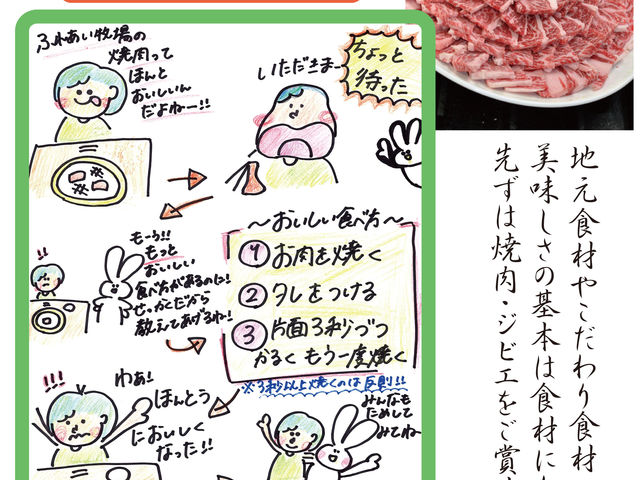 ふれあい牧場の
焼肉って
ほんと
おいしいん
だよねー!!
いただきまー
ちょっと
待った
!!
もーう!!
もっと
おいしい
食べ方があるのに!
せっかくだから
教えてあげるね!
〜おいしい食べ方〜
① お肉を焼く
② タレをつける
③ 片面3秒づつ
かるくもう一度焼く
※3秒以上焼くのは反則!!
!!!
わぁ!
ほんとう
においしく
なった!!
みんなも
ためして
みてね
地元食材やこだわり食材
美味しさの基本は食材に
先ずは焼肉・ジビエをご賞